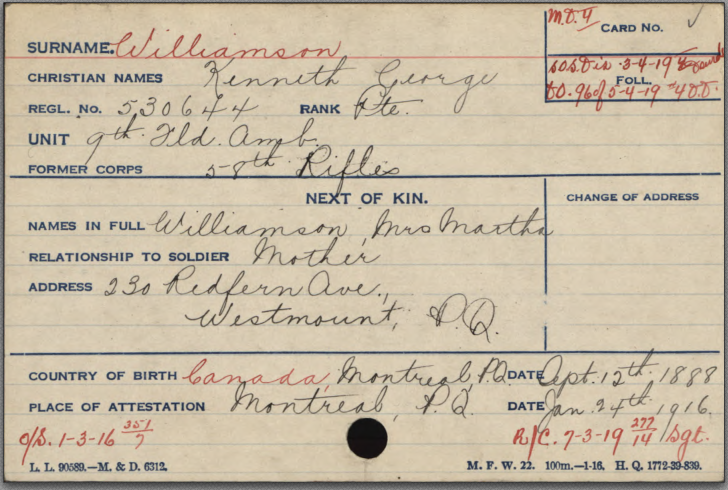 M.D. 4
CARD No. ✓
SURNAME. Williamson
S.O.S. Dis. 3-4-19
CHRISTIAN NAMES Kenneth George
FOLL.
D.O. 96 of 5-4-19 #4 D.D.
REGL. No. 530644 RANK Pte.
UNIT 9th Fld. Amb.
FORMER CORPS 58th Rifles
NEXT OF KIN.
CHANGE OF ADDRESS
NAMES IN FULL Williamson, Mrs Martha
RELATIONSHIP TO SOLDIER Mother
ADDRESS 230 Redfern Ave.,
Westmount, P.Q.
COUNTRY OF BIRTH Canada, Montreal, P.Q. DATE Sept. 12th 1888
PLACE OF ATTESTATION Montreal, P.Q. DATE Jan. 24th 1916.
O/S. 1-3-16 351/7
R/C. 7-3-19 277/14 Sgt.
L. L. 90589.—M. & D. 6312.
M. F. W. 22. 100m.—1-16. H. Q. 1772-39-839.